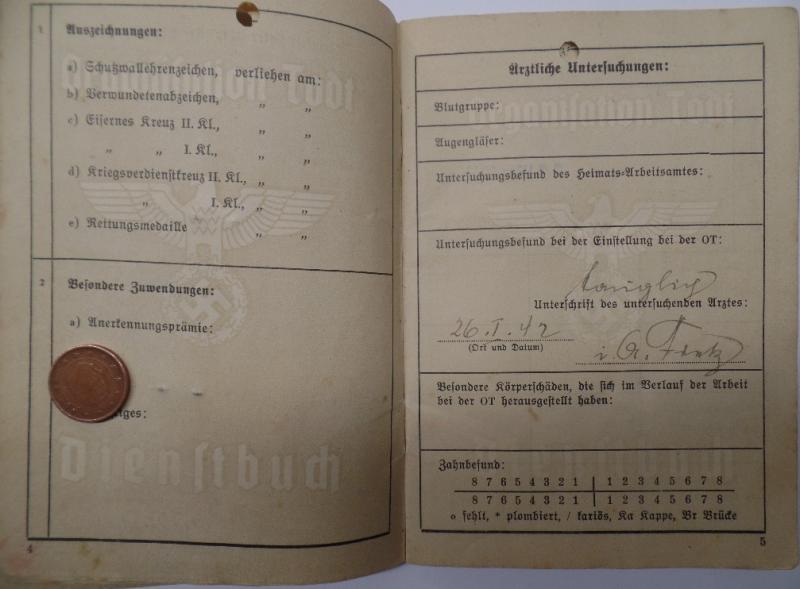 1
Auszeichnungen:
a) Schutzwallehrenzeichen, verliehen am:
b) Verwundetenabzeichen, „ „
c) Eisernes Kreuz II. Kl., „ „
„ „ I. Kl., „ „
d) Kriegsverdienstkreuz II. Kl., „ „
„ I. Kl., „ „
e) Rettungsmedaille „ „
2
Besondere Zuwendungen:
a) Anerkennungsprämie:
iges:
Dienstbuch
4
Ärztliche Untersuchungen:
Organisation Todt
Blutgruppe:
Augengläser:
Untersuchungsbefund des Heimats-Arbeitsamtes:
Untersuchungsbefund bei der Einstellung bei der OT:
tauglich
Unterschrift des untersuchenden Arztes:
26. I. 42
(Ort und Datum)
i. A.
Besondere Körperschäden, die sich im Verlauf der Arbeit
bei der OT herausgestellt haben:
Zahnbefund:
8 7 6 5 4 3 2 1 | 1 2 3 4 5 6 7 8
8 7 6 5 4 3 2 1 | 1 2 3 4 5 6 7 8
o fehlt, * plombiert, / kariös, Ka Kappe, Br Brücke
5